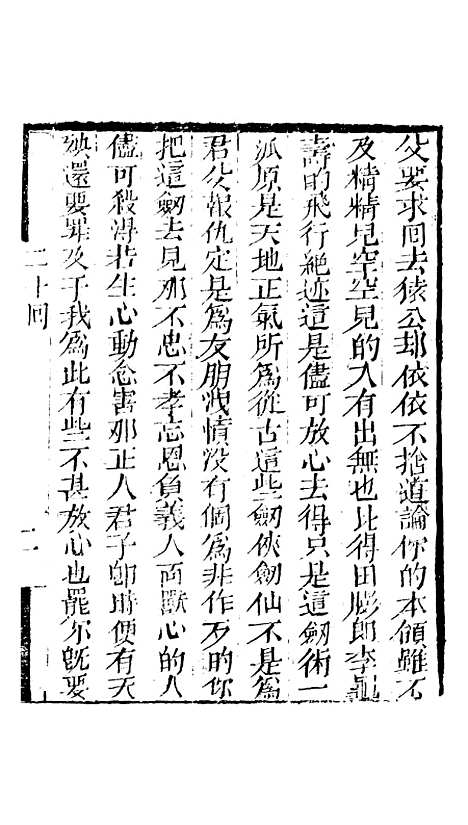 父要求囘去猿公却依依不捨道論你的本領雖不
及精精兒空空兒的入有出無也比得田膨郎李龜
壽的飛行絶迹這是儘可放心去得只是這劒術一
派原是天地正氣所爲從古這些劒俠劒仙不是爲
君父報仇定是爲友朋洩憤没有個爲非作歹的你
把這劒去見那不忠不孝忘恩負義人面獸心的人
儘可殺淂若生心動念害那正人君子卽時便有天
殃還要罪及于我爲此有些不甚放心也罷你旣要
二十囘
二